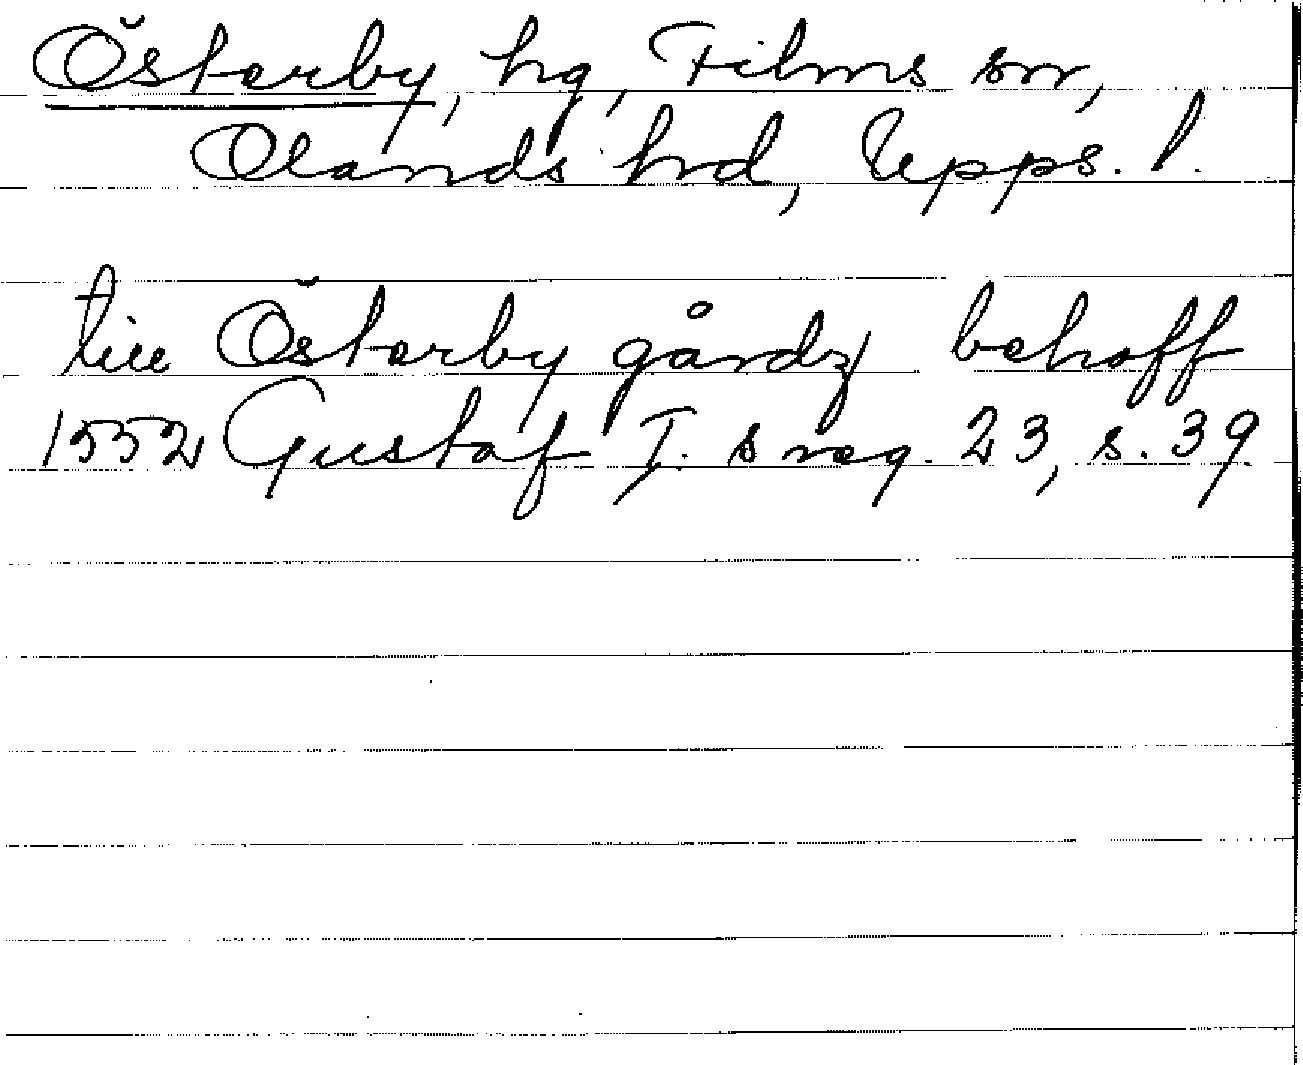 Österby, hg, Films sn,
Olands hd, Upps. l.
till Österby gårdz behoff
1552 Gustaf I:s reg. 23, s. 39.